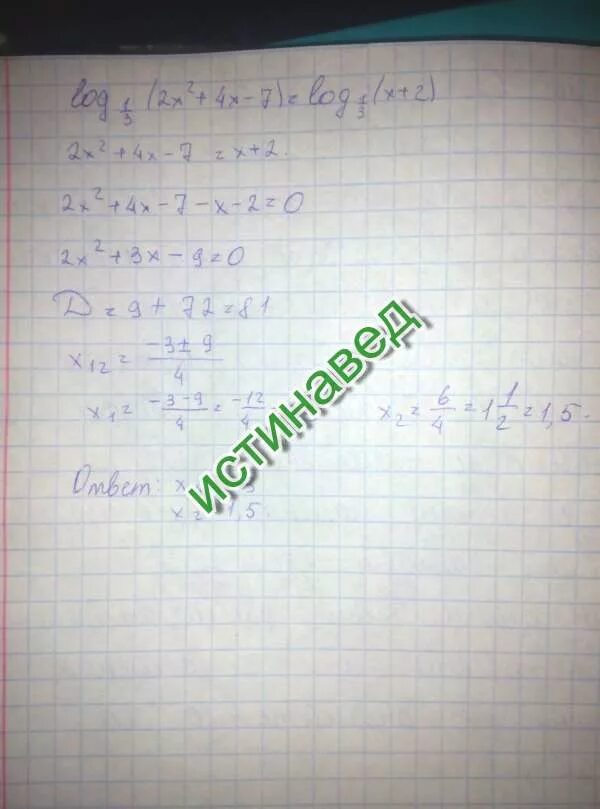 log 1/3 (2x² + 4x - 7) = log 1/3 (x + 2)
2x² + 4x - 7 = x + 2.
2x² + 4x - 7 - x - 2 = 0
2x² + 3x - 9 = 0
D = 9 + 72 = 81
x12 = -3 ± 9 / 4
x1 = -3 - 9 / 4 = -12 / 4
x2 = 6/4 = 1 1/2 = 1,5.
Ответ: x
x2 1,5.
истинавед